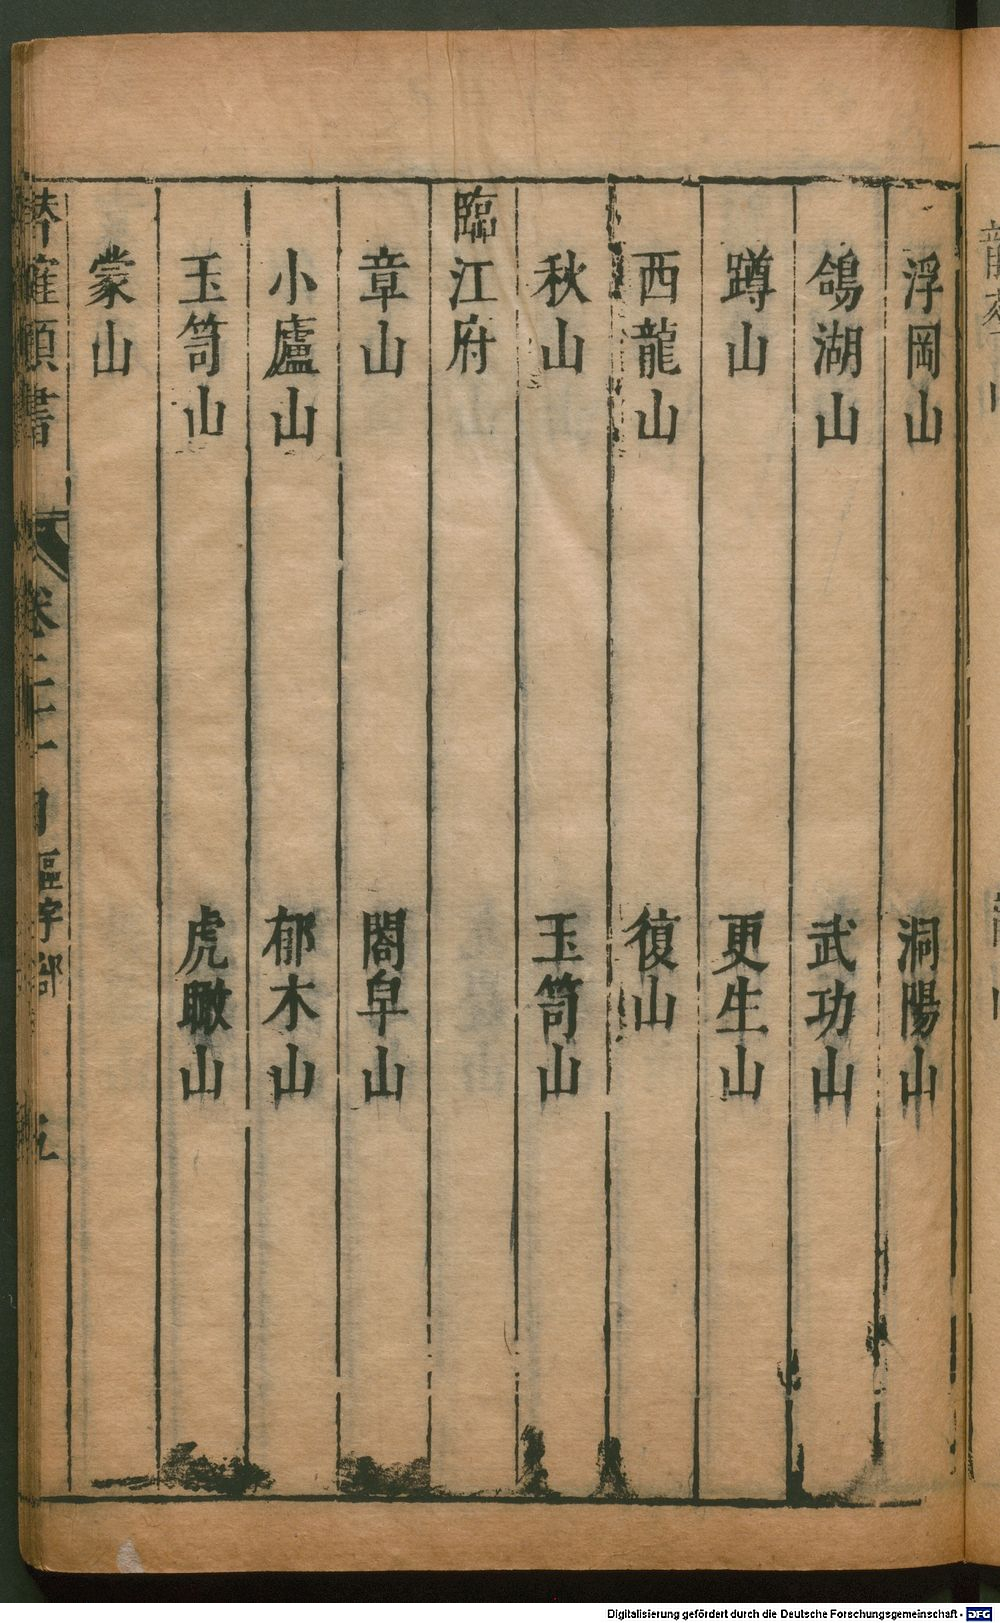 浮岡山 洞陽山
鴿湖山 武功山
蹲山 更生山
西龍山 復山
秋山 玉笥山
臨江府
章山 閤皁山
小廬山 郁木山
玉笥山 虎瞰山
蒙山
潛確類書 卷二十 區宇部
Digitalisierung gefördert durch die Deutsche Forschungsgemeinschaft - DFG